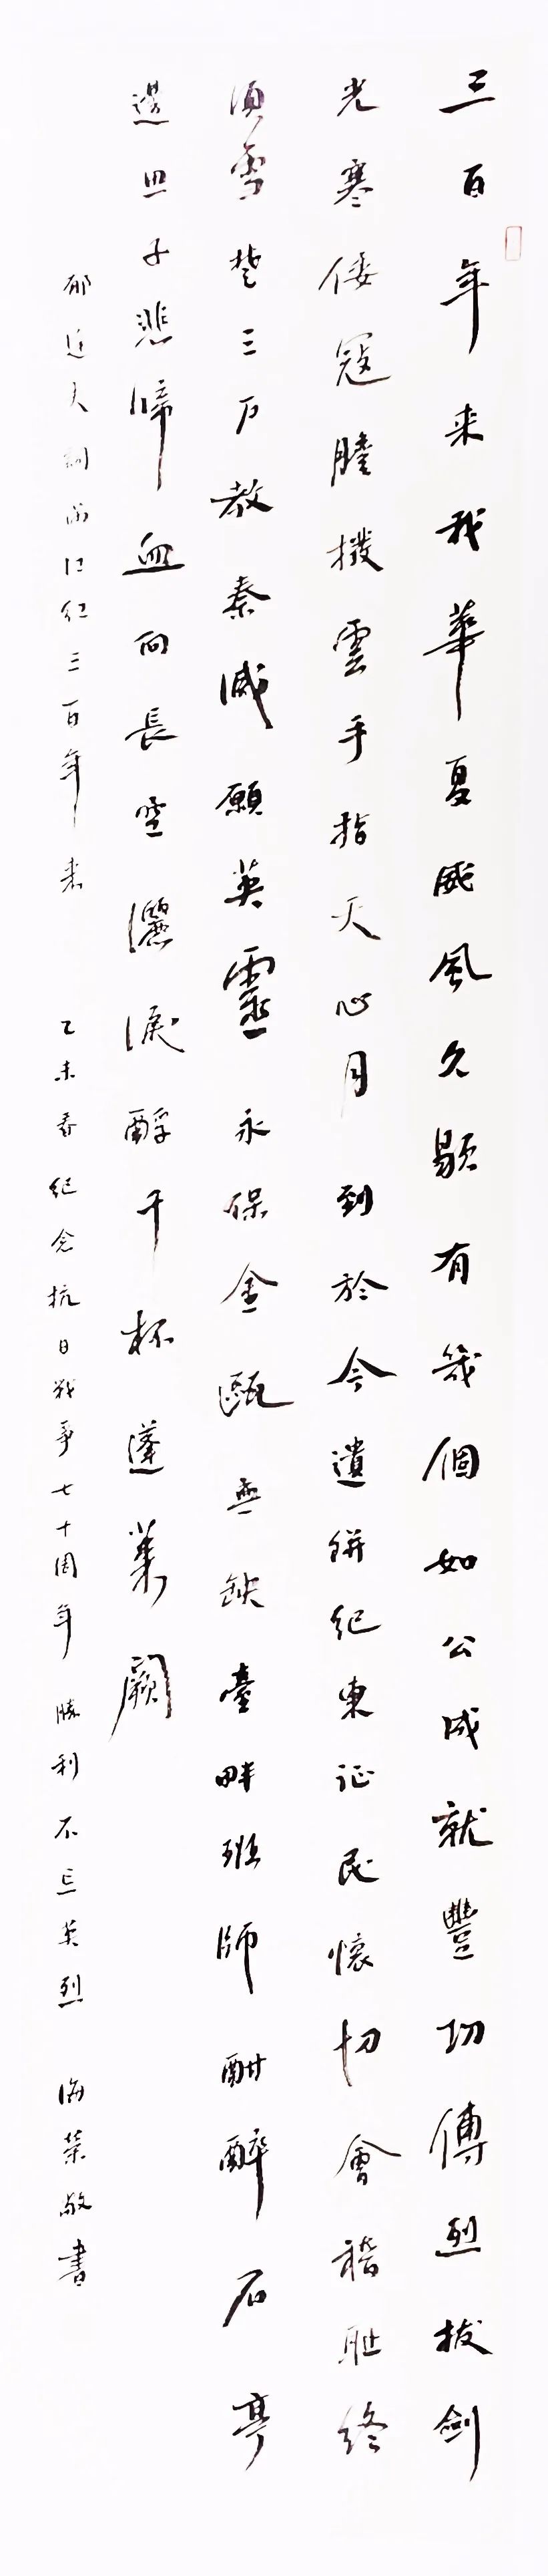 三百年来我華夏威風久歇有幾個如公成就豐功傳烈拔劍
光寒倭寇膽撥雲手指天心月到於今遺餅紀東征民懷切會稽耻終
須雪楚三户教秦滅願英靈永保金甌無缺臺畔班師酣醉石亭
邊思子悲啼血向長空灑淚酹千杯蓬萊闕
郁达夫詞满江红三百年来 乙未春纪念抗日战争七十周年 勝利不忘英烈 海榮敬書